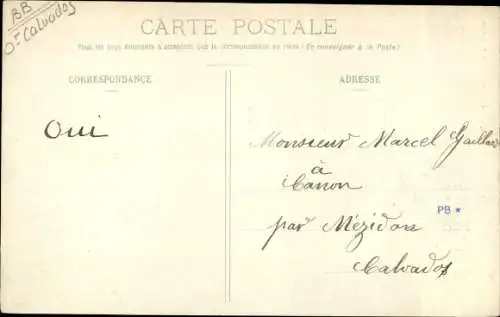 BB
Dt Calvados
CARTE POSTALE
Tous les pays étrangers n'acceptent pas la correspondance au recto (Se renseigner à la Poste)
CORRESPONDANCE
ADRESSE
Oui
Monsieur Marcel Gaillard
à
Canon
PB *
par Mézidon
Calvados